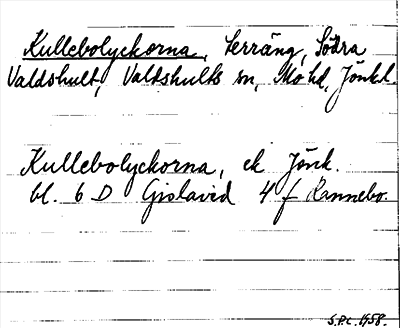 Kullebolyckorna, terräng, Södra
Valdshult, Valdshults sn, Mo hd, Jönkl.
Kullebolyckorna, ek Jönk.
bl. 6 D Gislaved 4 f Rannebo.
S.P.C. 1958.